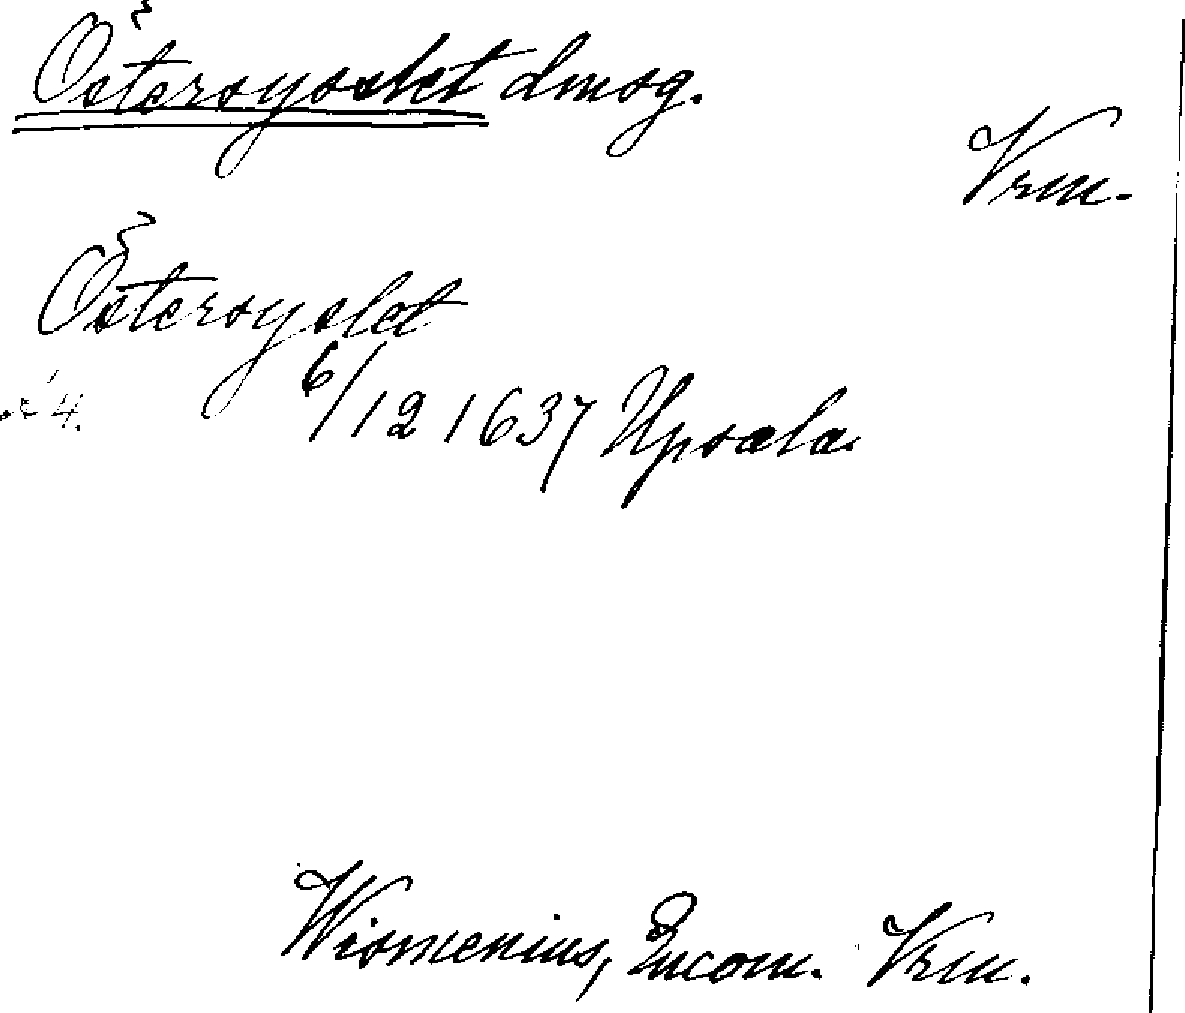 Östersysslet dmsg.
Vrm.
Östersyslet
6/12 1637 Upsala
Wismenius, Encom. Vrm.